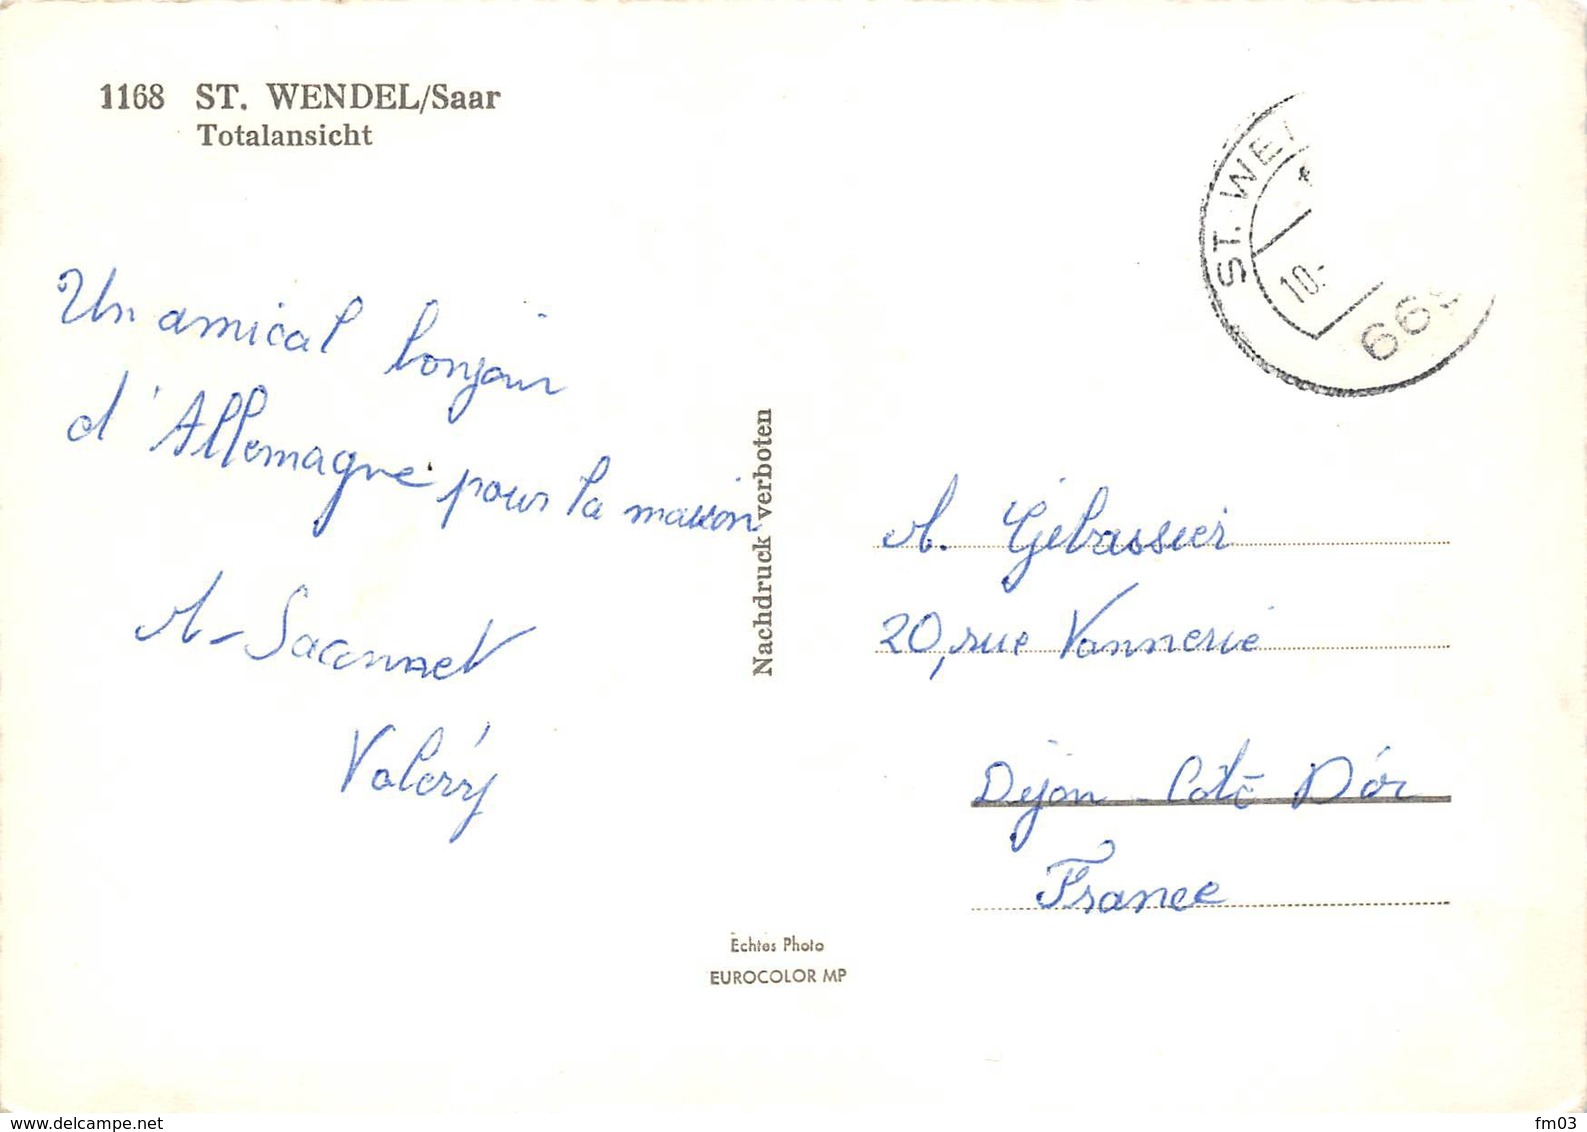 1168 ST. WENDEL/Saar
Totalansicht
Un amical bonjour
d'Allemagne pour la maison
A-Saconnet
Valéry
Nachdruck verboten
Echtes Photo
EUROCOLOR MP
ST. WE
10.-
669
A. Gébassier
20, rue Vannerie
Dijon - Côte D'or
France
www.delcampe.net
fm03